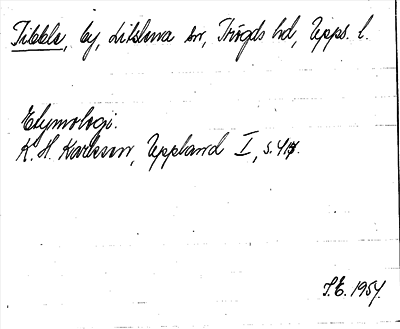 Tibble, by, Litslena sn, Trögds hd, Upps. l.
Etymologi.
K. H. Karlsson, Uppland I, s.
S.E. 1954.